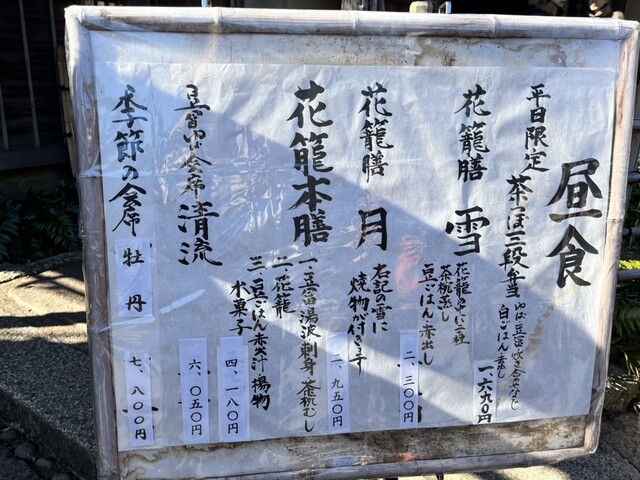 昼食
平日限定
茶つぼ三段弁当
ゆば豆富炊き合せなど
白ごはん赤だし
一、六九〇円
花籠膳 雪
花籠の中に三種
茶椀蒸し
豆ごはん 赤出し
二、三〇〇円
花籠膳 月
右記の雪に
焼物が付きます
二、九五〇円
花籠本膳
一、豆富 湯波刺身 茶椀むし
二、花籠 揚物
三、豆ごはん 赤出汁
水菓子
四、一八〇円
豆富ゆば会席 清流
六、〇五〇円
季節の会席 牡丹
七、八〇〇円